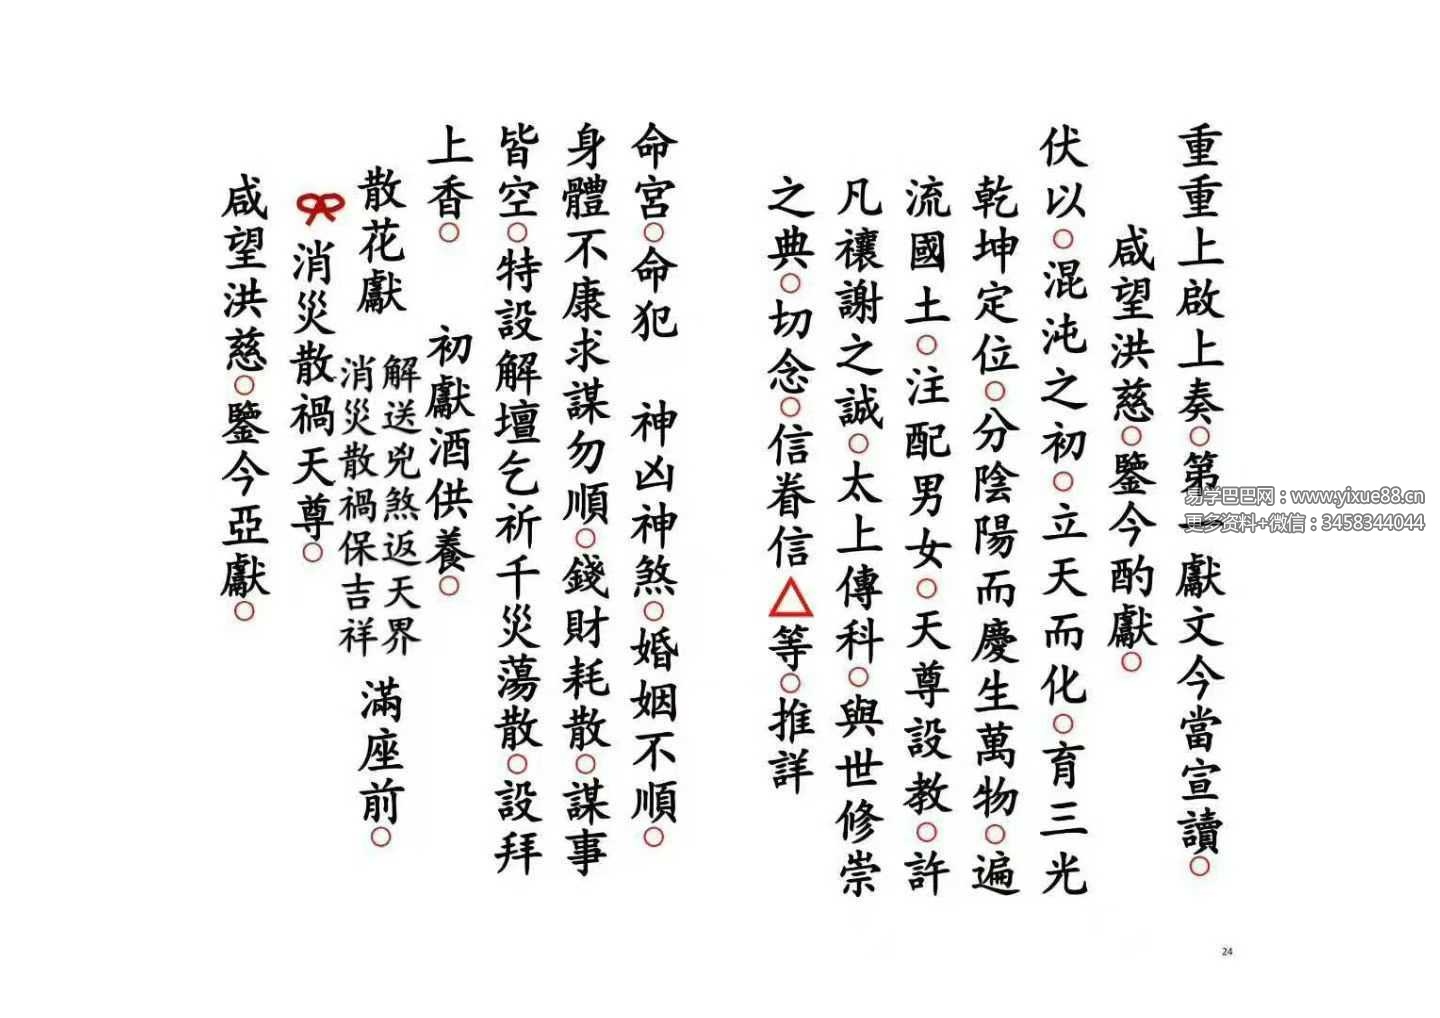 重重上啟上奏○第一獻文今當宣讀○
咸望洪慈○鑒今酌獻○
伏以○混沌之初○立天而化○育三光
乾坤定位○分陰陽而慶生萬物○遍
流國土○注配男女○天尊設教○許
凡禳謝之誠○太上傳科○與世修崇
之典○切念○信眷信△等○推詳
命宮○命犯　神凶神煞○婚姻不順○
身體不康求謀勿順○錢財耗散○謀事
皆空○特設解壇乞祈千災蕩散○設拜
上香○　初獻酒供養○
散花獻　解送兇煞返天界
消災散禍保吉祥　滿座前○
消災散禍天尊○
咸望洪慈○鑒今亞獻○
易学巴巴网：www.yixue88.cn
更多资料+微信：3458344044
24